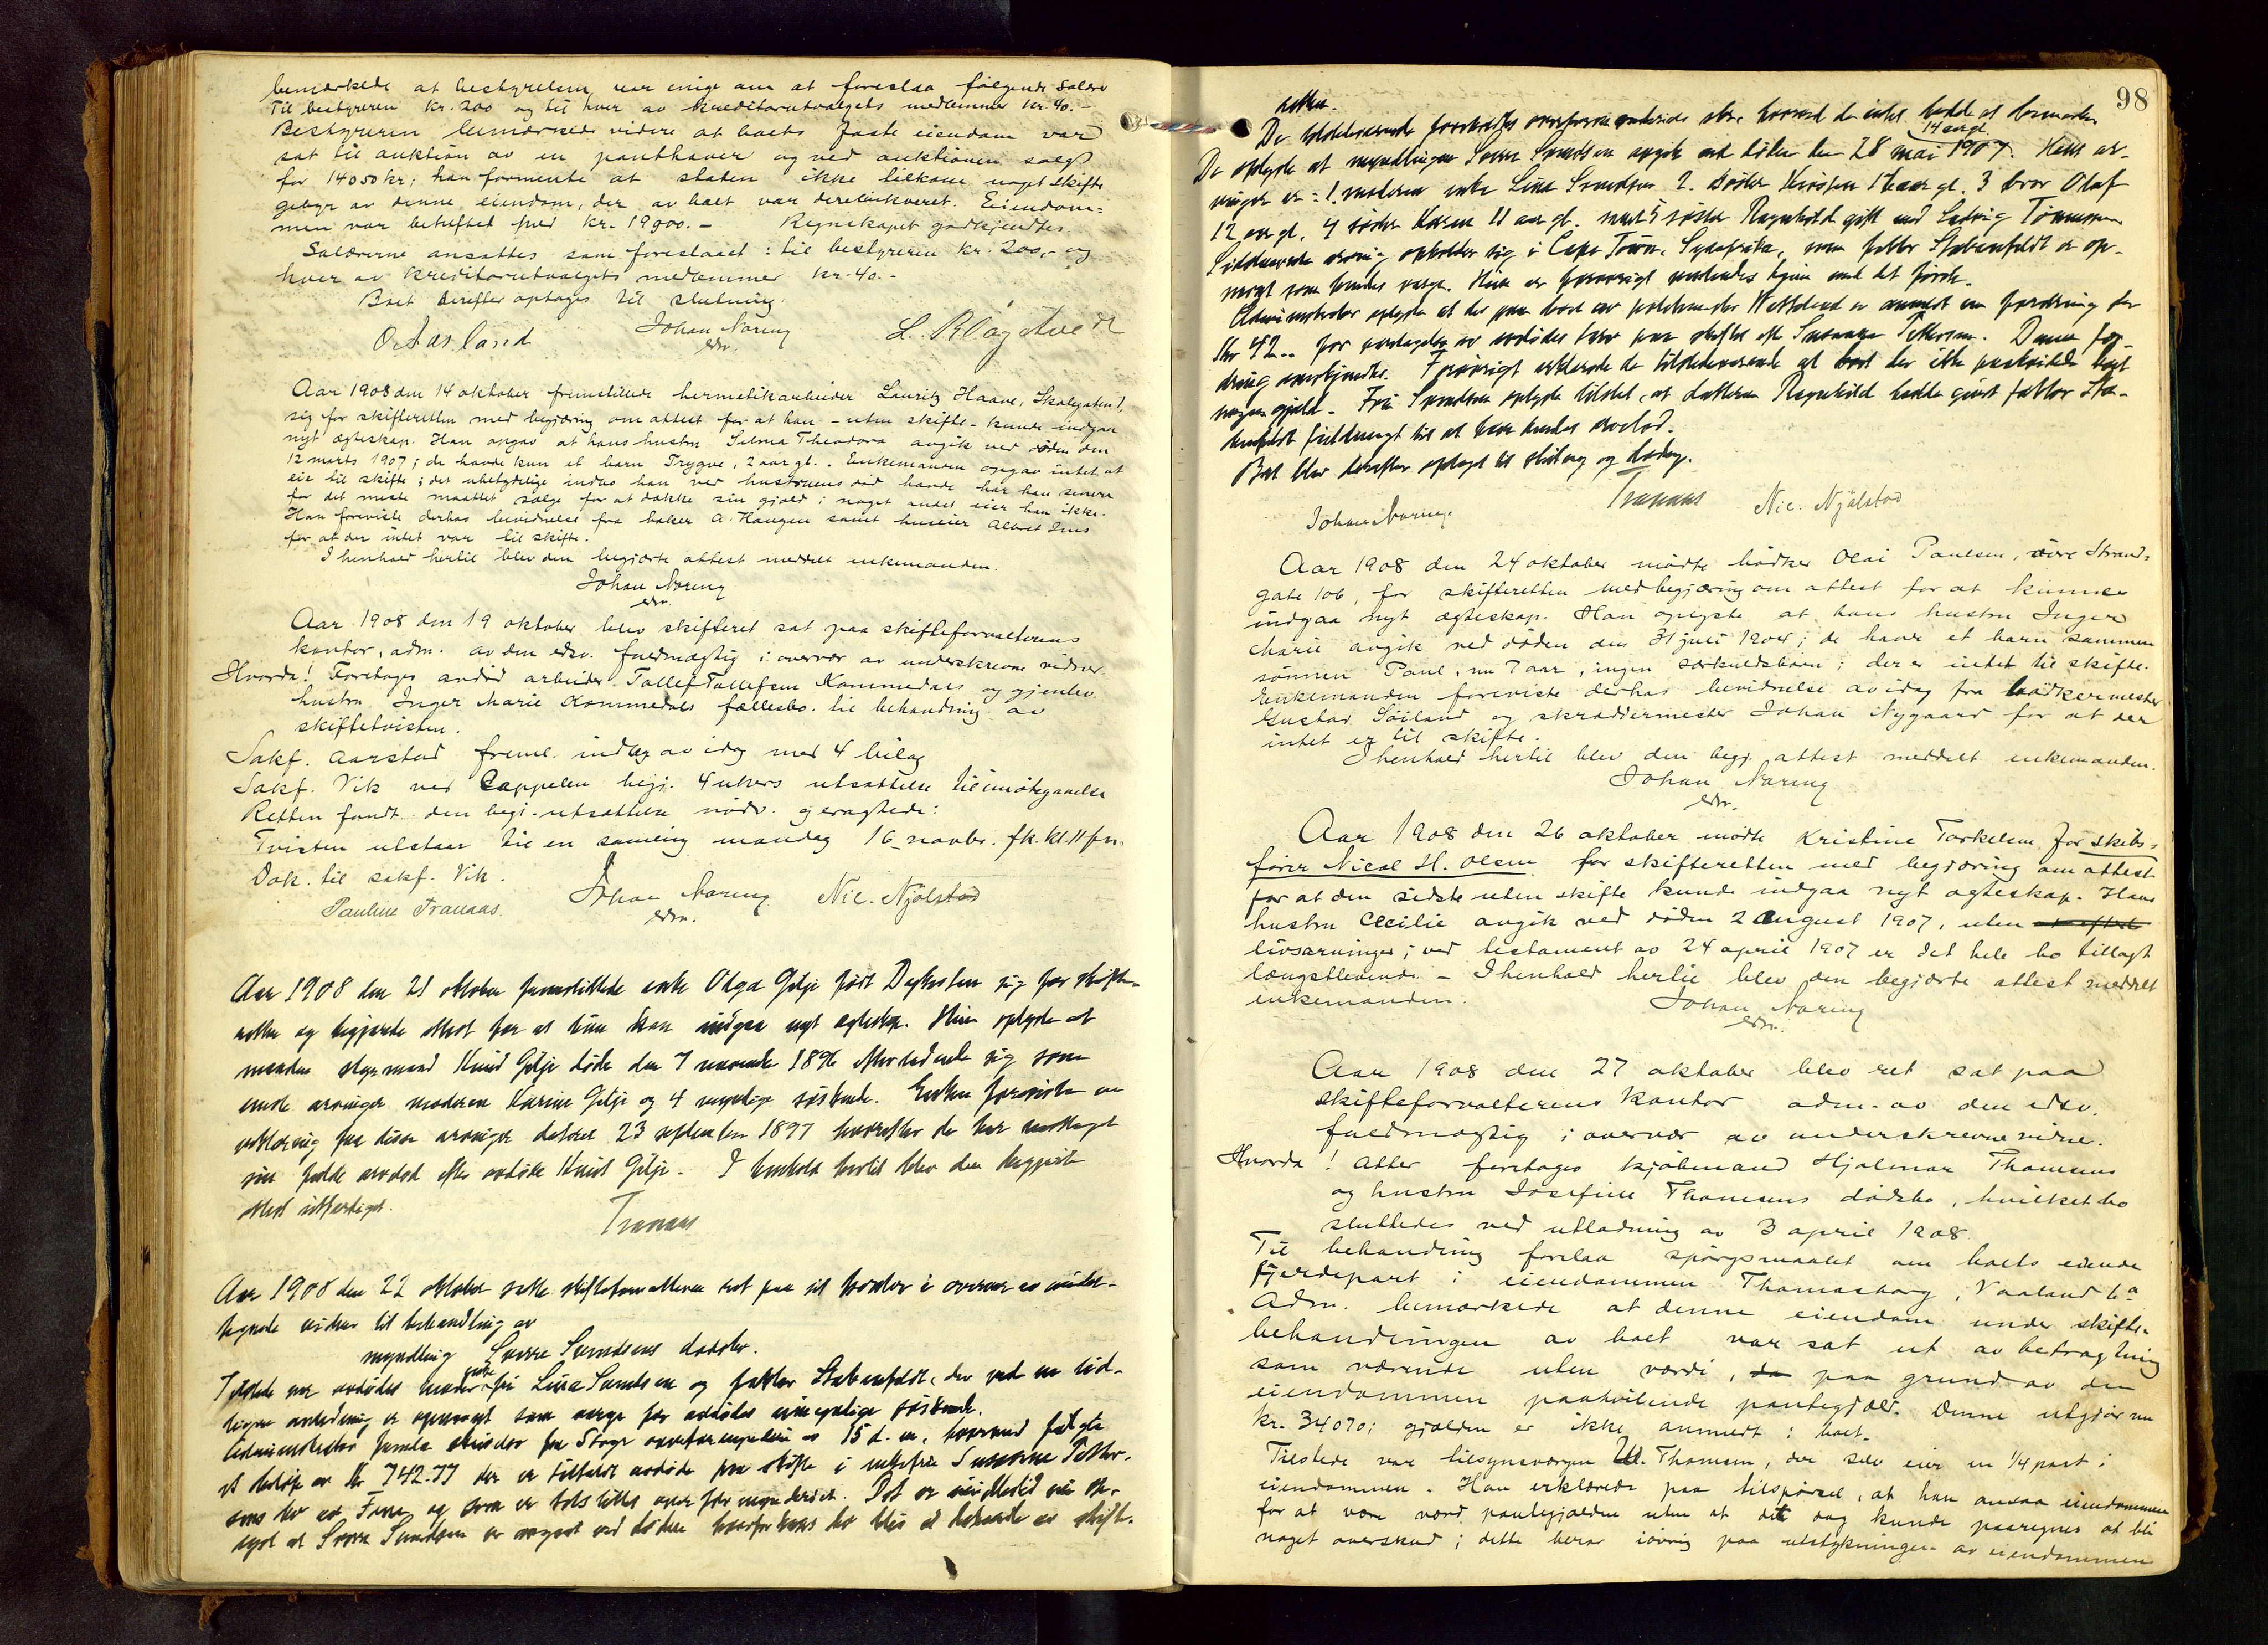 bemærkede at bestyrelsen var enige om at foreslaa følgende salær
Til bestyreren kr. 200 og til hver av kreditorutvalgets medlemmer kr. 40.-
Bestyreren bemærked videre at boets faste eiendom var
sat til auktion av en panthaver og ved auktionen solgt
for 14050 kr; han formente at staten ikke tilkom noget skifte
gebyr av denne eiendom, der av boet var derelinkveret. Eiendom=
men var beheftet med kr. 19000.- Regnskapet godkjendtes.
Salærerne ansattes som foreslaaet: til bestyreren kr. 200,- og
hver av kreditorutvalgets medlemmer kr. 40.-
Boet derefter optages til slutning.
O. Aasland Johan Næring L. Kloystuedt
edsv.
Aar 1908 den 14 oktober fremstillede hermetikarbeider Lauritz Haave, Skolegaten 1,
sig for skifteretten med begjæring om attest for at han - uten skifte - kunde indgaa
nyt ægteskap. Han opgav at hans hustru Selma Theodora avgik ved døden den
12 marts 1907; de havde kun et barn Trygve, 2 aar gl.. Enkemanden opgav intet at
eie til skifte; det ubetydelige indbo han ved hustruens død havde har han senere
for det meste maattet sælge for at dække sin gjæld; noget andet eier han ikke.
Han foreviste derhos bevidnelse fra baker A. Haugen samt huseier Albret Ims
for at der intet var til skifte.
I henhold hertil blev den begjærte attest meddelt enkemanden.
Johan Næring
edsv.
Aar 1908 den 19 oktober blev skifteret sat paa skifteforvalterens
kontor, adm. av den edsv. fuldmægtig i overvær av underskrevne vidner.
Hvorda! Foretages avdød arbeider Tollef Tollefsen Kommedals og gjenlev.
hustru Inger Marie Kommedals fællesbo til behandling av
skiftetvisten.
Sakf. Aarstad freml. indlæg av idag med 4 bilag
Sakf. Vik ved Cappelen begj. 4 ukers utsættelse til imøtegaaelse
Retten fandt den begj. utsættelse nødv. og eragtede:
Tvisten utstaar til en samling mandag 16 novbr. fk. kl. 11 fm.
Dok. til sakf. Vik.
Pauline Tranaas. Johan Næring Nic. Njølstad
edsv.
Aar 1908 den 21 oktober fremstillede enke Olga Gilje født sig for skifte-
retten og begjærte attest for at hun kan indgaa nyt egteskap. Hun oplyste at
manden styrmand Knud Gilje døde den 7 november 1896 efterladende sig som
eneste arvinger moderen Karine Gilje og 4 myndige søskende. Enken foreviste en
erklæring fra disse arvinger dateret 23 september 1897 hvorefter de har mottaget
sin fulde arvelod efter avdøde Knud Gilje. I henhold hertil blev den begjærte
attest utfærdiget.
Tranaas
Aar 1908 den 22 oktober satte skifteforvalteren ret paa sit kontor i overvær av under-
tegnede vidner til behandling av
myndling Sverre Svendsens dødsbo.
Tilstede var avdødes moder enke fru Lina Svendsen og faktor Stabenfeldt, der ved en tid-
ligere anledning er opnævnt som verge for avdødes umyndige søskende.
Administrator fremla skrivelse fra Stavgr. overformynderi av 15 d. m., hvormed fulgte
et beløp av kr 742.77 der er tilfaldt avdøde paa skifte i enkefru Susanne Petter-
sens bo og som er tilstillet overformynderiet. Det er imidlertid nu op-
lyst at Sverre Svendsen er avgaat ved døden hvorfor hans bo blir at behandle av skift-
98
retten.
De tilstedeværende forelagdes overformynderiets skr. hvorved de intet hadde at bemærke.
De oplyste at myndlingen Sverre Svendsen 14 aar gl. avgik ved døden den 28 mai 1907. Hans ar-
vinger er: 1. moderen enke Lina Svendsen 2. søster Kirsten 16 aar gl. 3 bror Olaf
12 aar gl. 4 søster Karen 11 aar gl. samt 5 søster Ragnhild gift med Ludvig Tønnesen
Sidstnævnte arving opholder sig i Cape Town, Sydafrika, men faktor Stabenfeldt er op-
nævnt som hendes verge. Hun er forøvrigt myndig
Administrator oplyste at der paa boet av politimester Wetteland er anmeldt en fordring for
kr 42.- for av avdødes tarv paa skiftet efter Susanne Pettersen. Denne for-
dring anerkjendtes. Forøvrigt erklærede de tilstedeværende at der ikke paahviler boet
nogen gjæld. Fru Svendsen oplyste tilslut, at datteren Ragnhild hadde givet faktor Sta-
benfeldt fuldmagt til at hæve hendes arvelod.
Boet blev derefter optaget til slutning og
Johan Næring Tranaas Nic. Njølstad
Aar 1908 den 24 oktober mødte bødker Olai Paulsen, øvre Strand=
gate 106, for skifteretten med begjæring om attest for at kunne
indgaa nyt ægteskap. Han oplyste at hans hustru Inger
Marie avgik ved døden den 31 juli 1904; de havde et barn sammen
sønnen Paul, nu 7 aar, ingen særkuldsbarn; der er intet til skifte.
Enkemanden foreviste derhos bevidnelse av idag fra bødkermester
Gustav Soiland og skræddermester Johan Nygaard for at der
intet er til skifte.
I henhold hertil blev den begj. attest meddelt enkemanden.
Johan Næring
edsv.
Aar 1908 den 26 oktober mødte Kristine Torkelsen for skibs=
fører Nicol H. Olsen for skifteretten med begjæring om attest
for at den sidste uten skifte kunde indgaa nyt ægteskap. Hans
hustru Cecilie avgik ved døden 2 august 1907, uten
livsarvinger; ved testament av 24 april 1907 er det hele bo tillagt
længstlevende. - I henhold hertil blev den begjærte attest meddelt
enkemanden.
Johan Næring
edsv.
Aar 1908 den 27 oktober blev ret sat paa
skifteforvalterens kontor adm. av den edsv.
fuldmægtig i overvær av underskrevne vidne.
Hvorda! Atter foretages kjøbmand Hjalmar Thomsens
og hustru Josefine Thomsens dødsbo, hvilket bo
sluttedes ved utlodning av 3 april 1908.
Til behandling forelaa spørgsmaalet om boets eiende
fjerdepart i eiendommen Thomasborg, Vaaland 6a
Adm. bemærkede at denne eiendom under skifte-
behandlingen av boet var sat ut av betragtning
som værende uten værdi, paa grund av den
eiendommen paahvilende pantegjæld. Denne utgjør nu
kr. 34070; gjælden er ikke anmeldt i boet.
Tilstede var tilsynsværgen W. Thomsen, der selv eier en 1/4 part i
eiendommen. Han erklærede paa tilspørsel, at han ansaa eiendommen
for at være værd pantegjælden uten at det dog kunde paaregnes at bli
noget overskud; dette beror iøvrig paa utstykningen av eiendommen